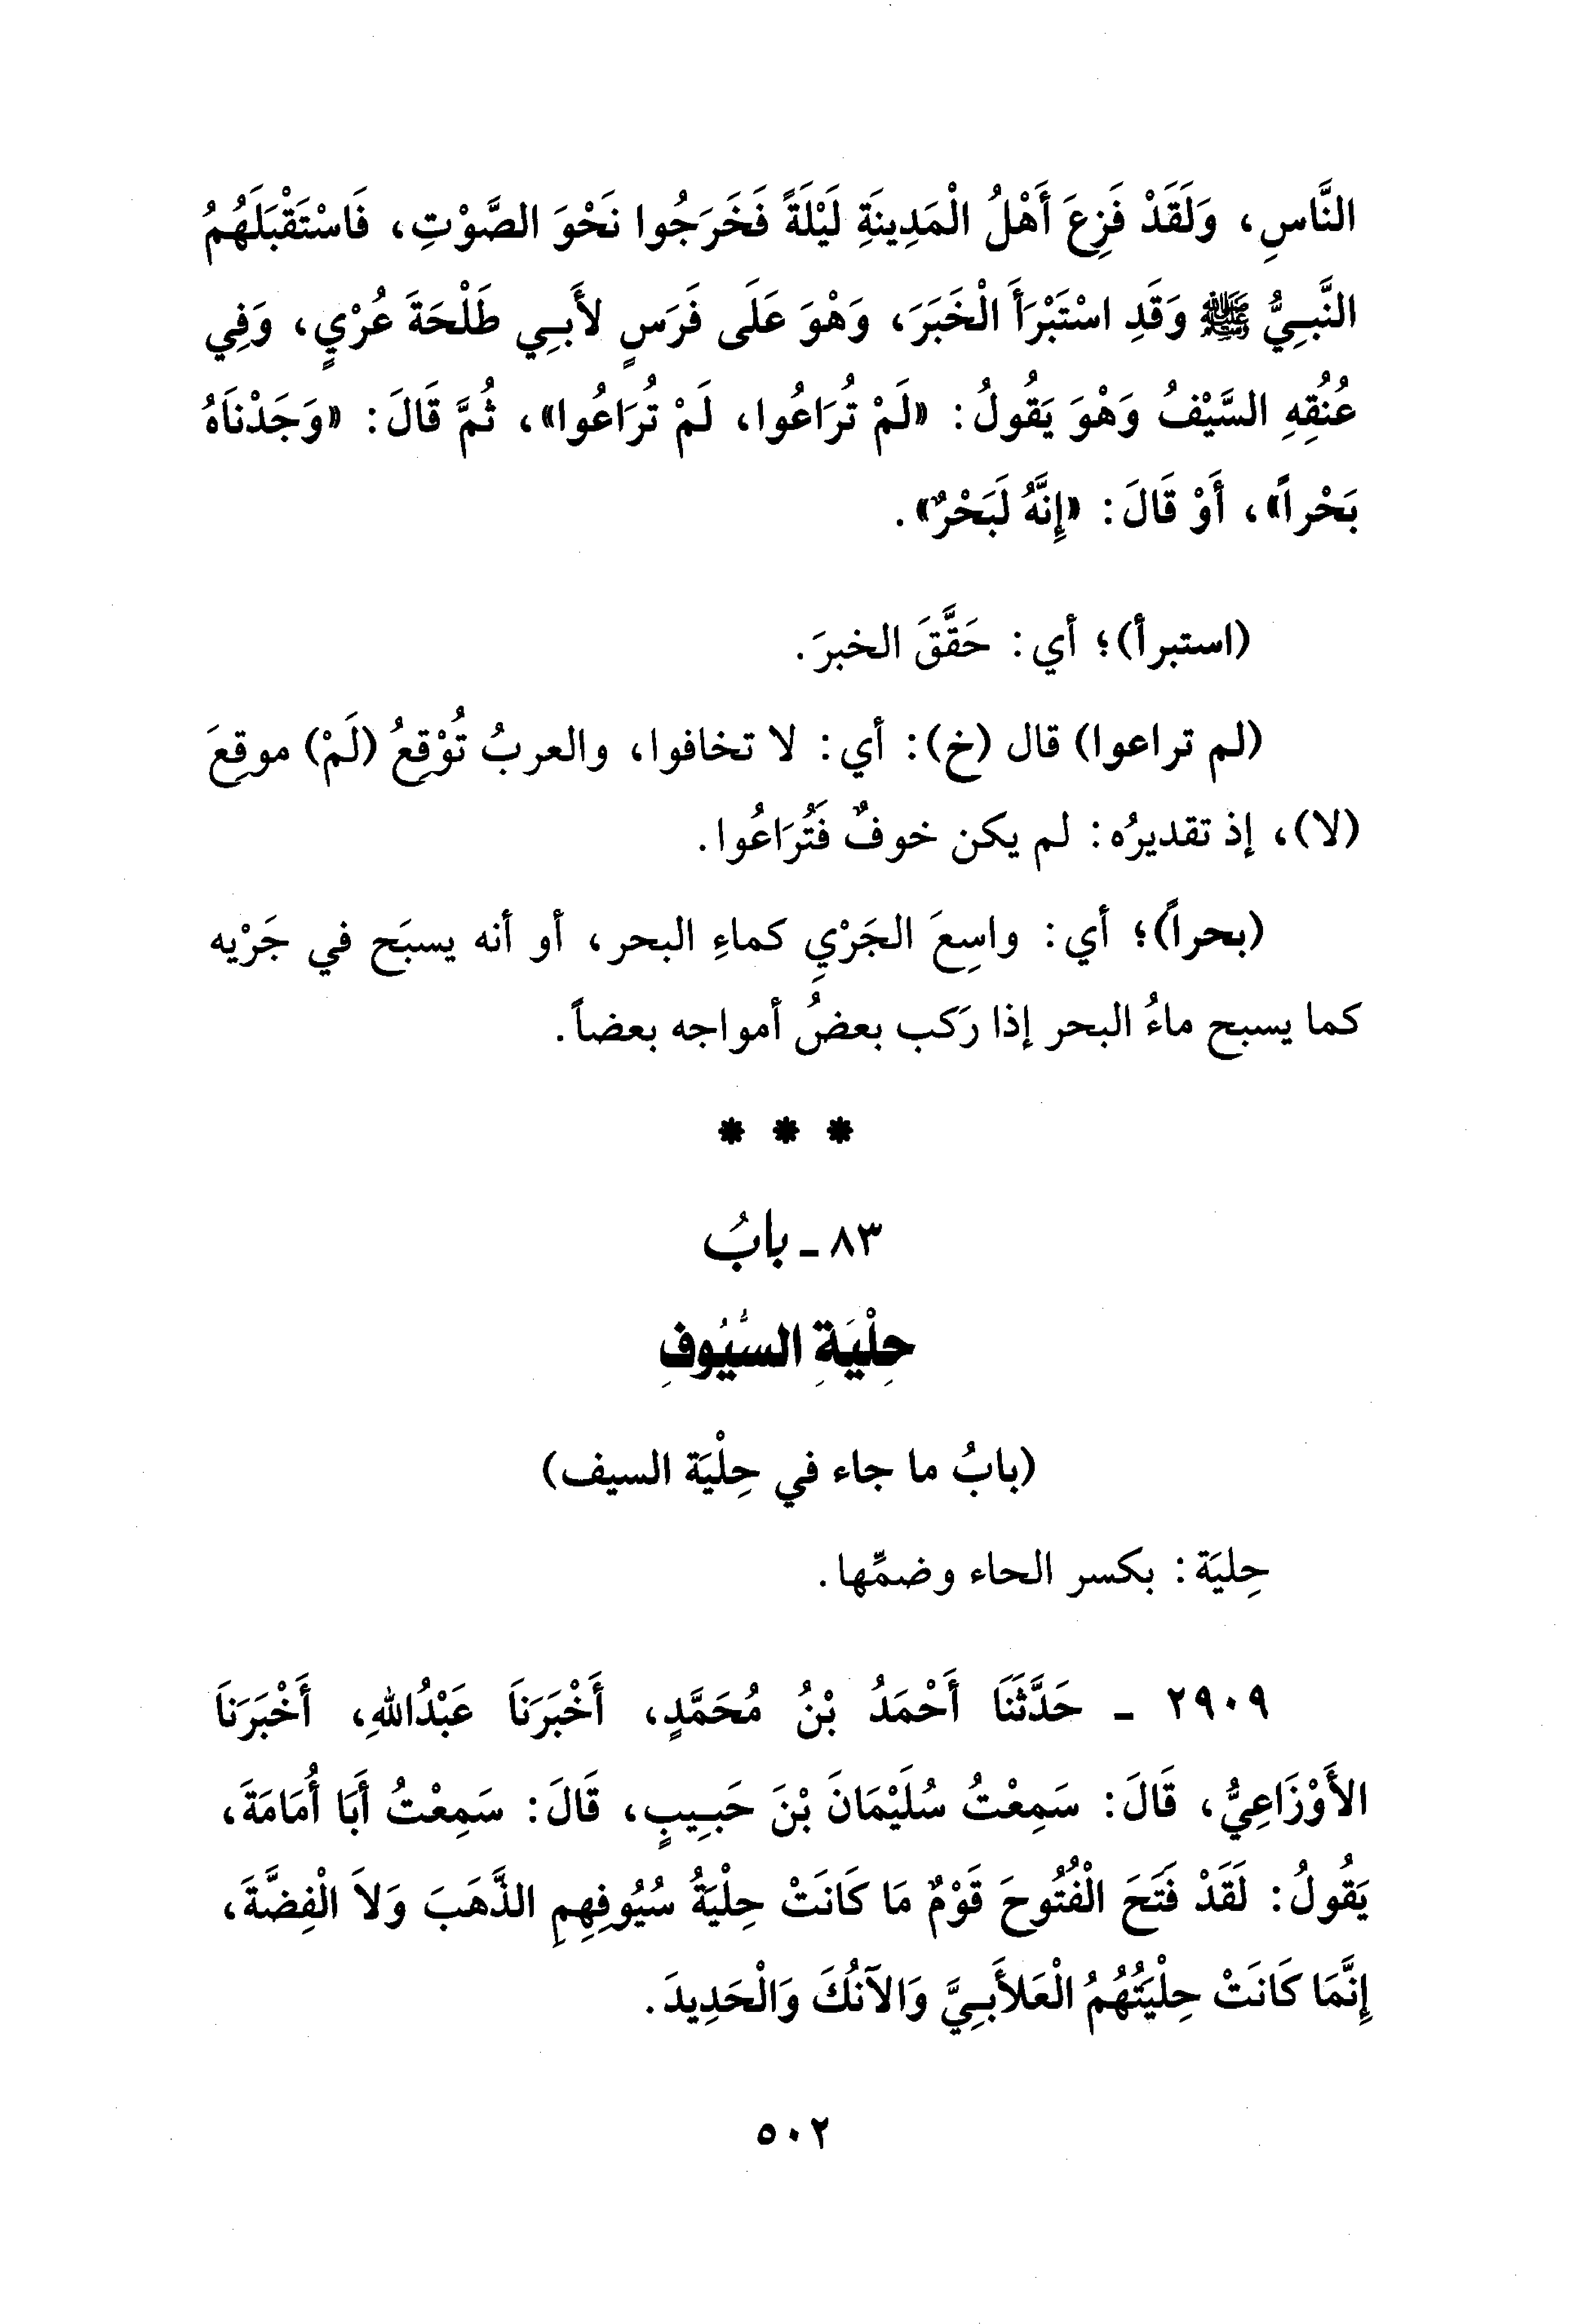 النَّاسِ، وَلَقَدْ فَزِعَ أَهْلُ الْمَدِينَةِ لَيْلَةً فَخَرَجُوا نَحْوَ الصَّوْتِ، فَاسْتَقْبَلَهُمُ
النَّبِيُّ ﷺ وَقَدِ اسْتَبْرَأَ الْخَبَرَ، وَهْوَ عَلَى فَرَسٍ لأَبِي طَلْحَةَ عُرْيٍ، وَفِي
عُنُقِهِ السَّيْفُ وَهْوَ يَقُولُ: «لَمْ تُرَاعُوا، لَمْ تُرَاعُوا»، ثُمَّ قَالَ: «وَجَدْنَاهُ
بَحْراً»، أَوْ قَالَ: «إِنَّهُ لَبَحْرٌ».
(استبرأ)؛ أي: حَقَّقَ الخبرَ.
(لم تراعوا) قال (خ): أي: لا تخافوا، والعربُ تُوْقِعُ (لَمْ) موقعَ
(لا)، إذ تقديرُه: لم يكن خوفٌ فَتُرَاعُوا.
(بحراً)؛ أي: واسِعَ الجَرْيِ كماءِ البحر، أو أنه يسبَح في جَرْيه
كما يسبح ماءُ البحر إذا رَكب بعضُ أمواجه بعضاً.
* * *
٨٣ - بابُ
حِلْيَةِ السُّيُوفِ
(بابُ ما جاء في حِلْيَة السيف)
حِليَة: بكسر الحاء وضمِّها.
٢٩٠٩ - حَدَّثَنَا أَحْمَدُ بْنُ مُحَمَّدٍ، أَخْبَرَنَا عَبْدُاللهِ، أَخْبَرَنَا
الأَوْزَاعِيُّ، قَالَ: سَمِعْتُ سُلَيْمَانَ بْنَ حَبِيبٍ، قَالَ: سَمِعْتُ أَبَا أُمَامَةَ،
يَقُولُ: لَقَدْ فَتَحَ الْفُتُوحَ قَوْمٌ مَا كَانَتْ حِلْيَةُ سُيُوفِهِمِ الذَّهَبَ وَلاَ الْفِضَّةَ،
إِنَّمَا كَانَتْ حِلْيَتُهُمُ الْعَلاَبِيَّ وَالآنُكَ وَالْحَدِيدَ.
٥٠٢